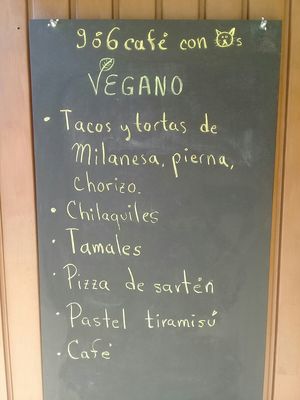 9ó6 café con s
VEGANO
• Tacos y tortas de
Milanesa, pierna,
chorizo.
• Chilaquiles
• Tamales
• Pizza de sartén
• Pastel tiramisú
• Café